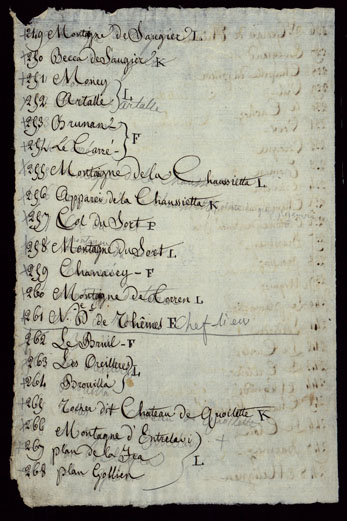 249 Montagne de Saugier L
250 Becca de Saugier K
251 Money
252 Artalle L artalle
253 Bruman
254 Le Carré F
255 Montagne de la Chaussietta L
256 Apparer de la Chaussietta K
257 Col du Sort P
258 Montagne du Sort L
259 Chanavey - F
260 Montagne de Torren L
261 N. De de Rhêmes E Chef lieu
262 Le Bruil - F
263 Les Oreilleres
264 Brouilla L
265 Rocher dit Chateau de Quolette K
266 Montagne d'Entrelavi
267 plan de la Fea L
268 plan Gollien